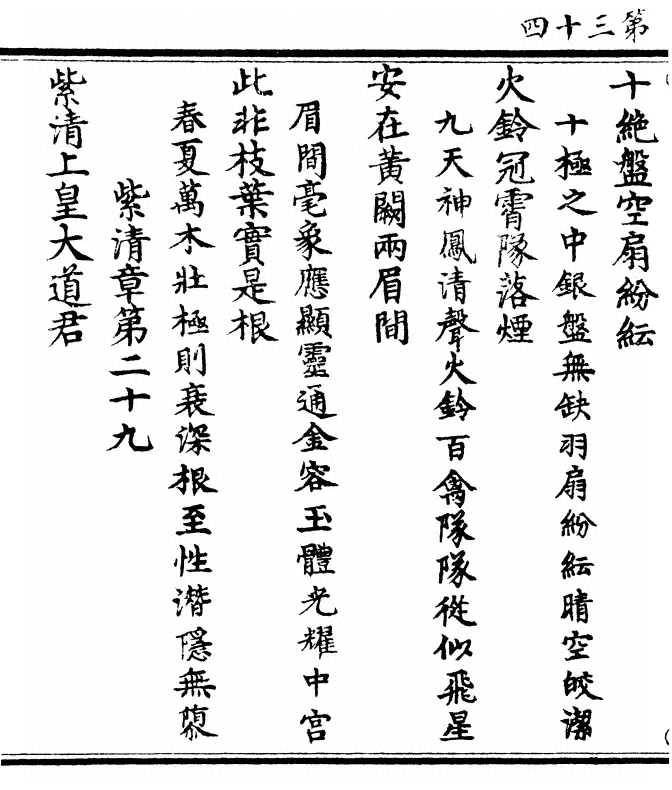 第三十四
十絶盤空扇紛紜
十極之中銀盤無缺羽扇紛紜晴空皎潔
火鈴冠霄隊落煙
九天神鳳清聲火鈴百禽隊隊從似飛星
安在黃闕兩眉間
眉間毫象應顯靈通金容玉體光耀中宮
此非枝葉實是根
春夏萬木壯極則衰深根至性潜隱無隳
紫清章第二十九
紫清上皇大道君